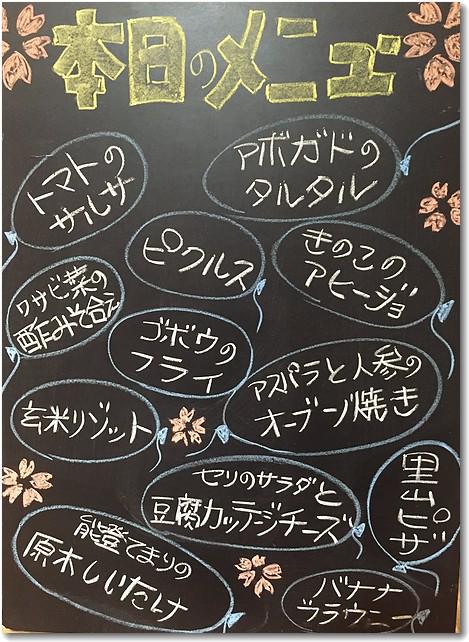 本日のメニュー
アボガドの
タルタル
トマトの
サルサ
ピクルス
きのこの
アヒージョ
ワサビ菜の
酢みそ合え
ゴボウの
フライ
アスパラと人参の
オーブン焼き
玄米リゾット
セリのサラダと
豆腐カッテジチーズ
里山ピザ
能登てまりの
原木しいたけ
バナナ
ブラウニー